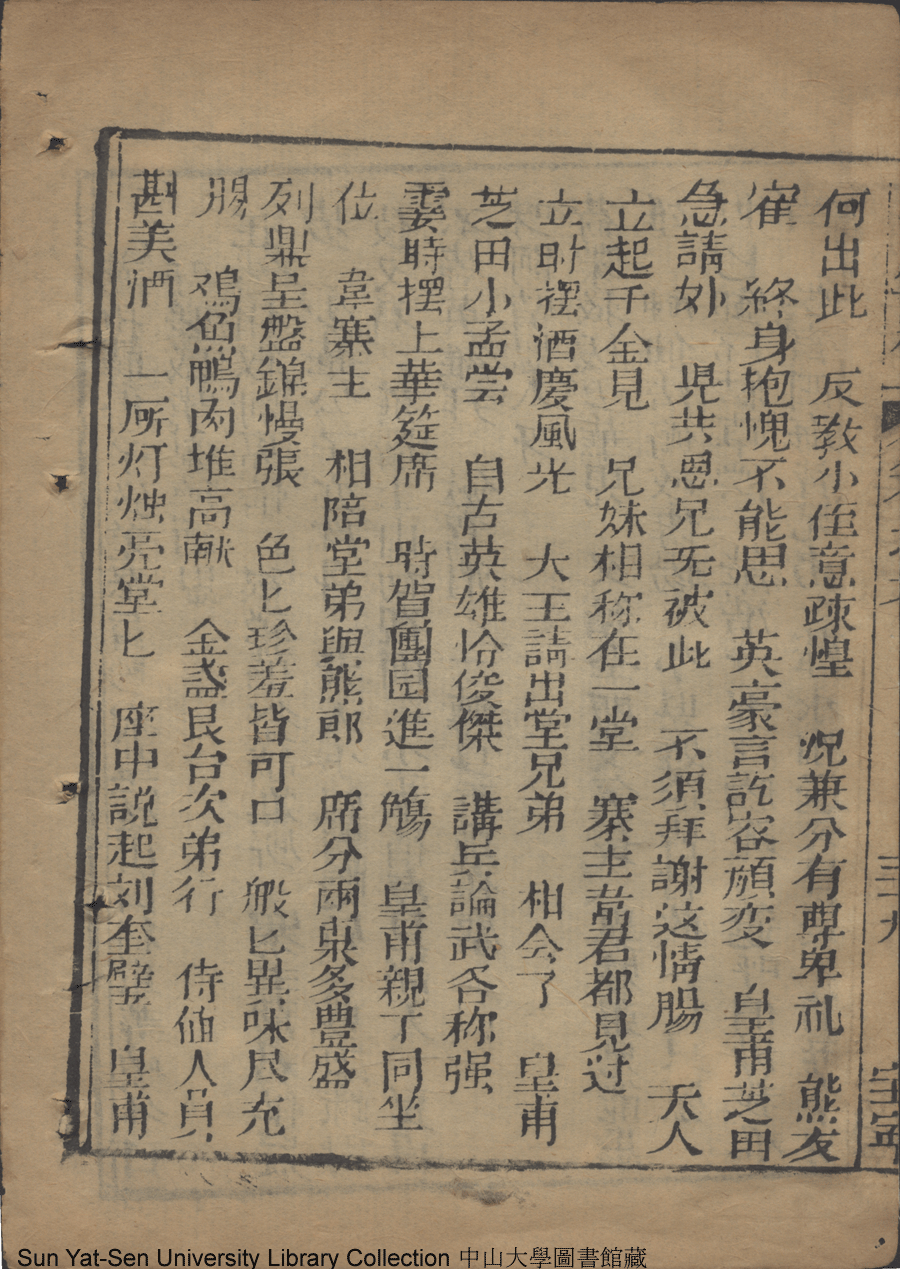 何出此　反教小侄意疎惶　况兼分有尊卑礼　熊友
寉　終身抱愧不能思　英豪言訖容顔変　皇甫芝田
急請妳　見共恩兄无彼此　不須拜謝这情腸　夫人
立起千金見　兄妹相称在一堂　寨主韋君都見过
立时摆酒慶風光　大王請出堂兄弟　相会了　皇甫
芝田小孟尝　自古英雄怜俊傑　講兵論武各称强
霎時摆上華筵席　時賀團园進一觴　皇甫親丁同坐
位　韋寨主　相陪堂弟與熊郎　席分兩桌多豊盛
列鼎呈盤錦慢張　色匕珍羞皆可口　般匕異味尽充
腸　鳮魚鴨肉堆高献　金盞艮台次弟行　侍值人員
斟美酒　一所灯烛亮堂匕　座中説起刘奎璧　皇甫
Sun Yat-Sen University Library Collection 中山大學圖書館藏